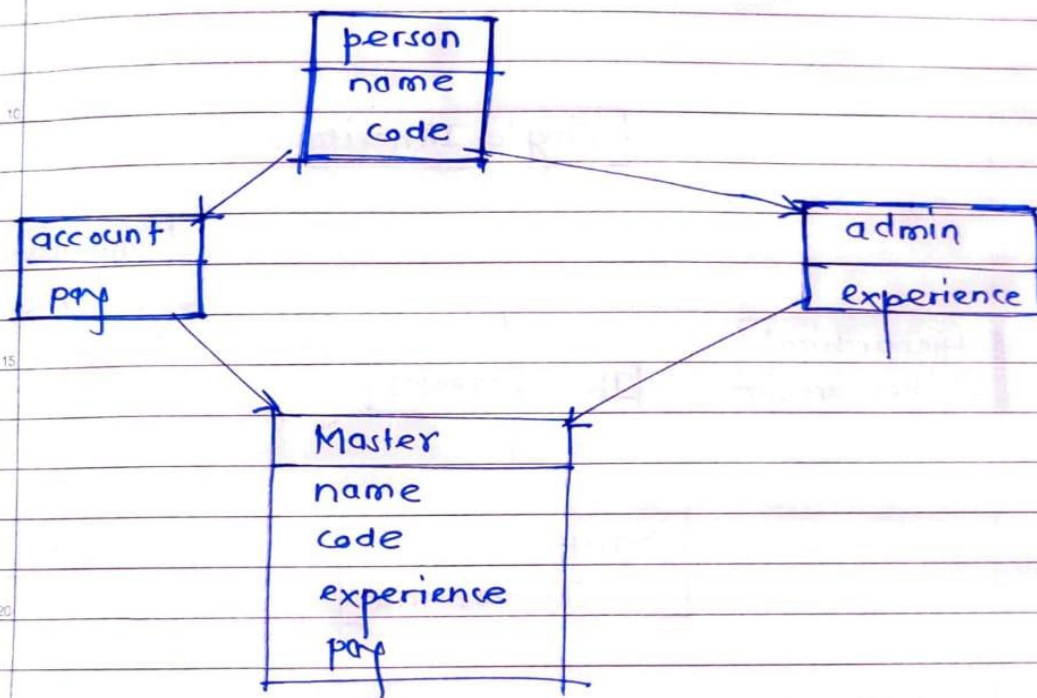 person
name
code
account
pay
admin
experience
Master
name
code
experience
pay
10
15
20